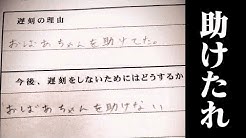 遅刻の理由
おばあちゃんを助けてた。
今後、遅刻をしないためにはどうするか
おばあちゃんを助けない
助けたれ